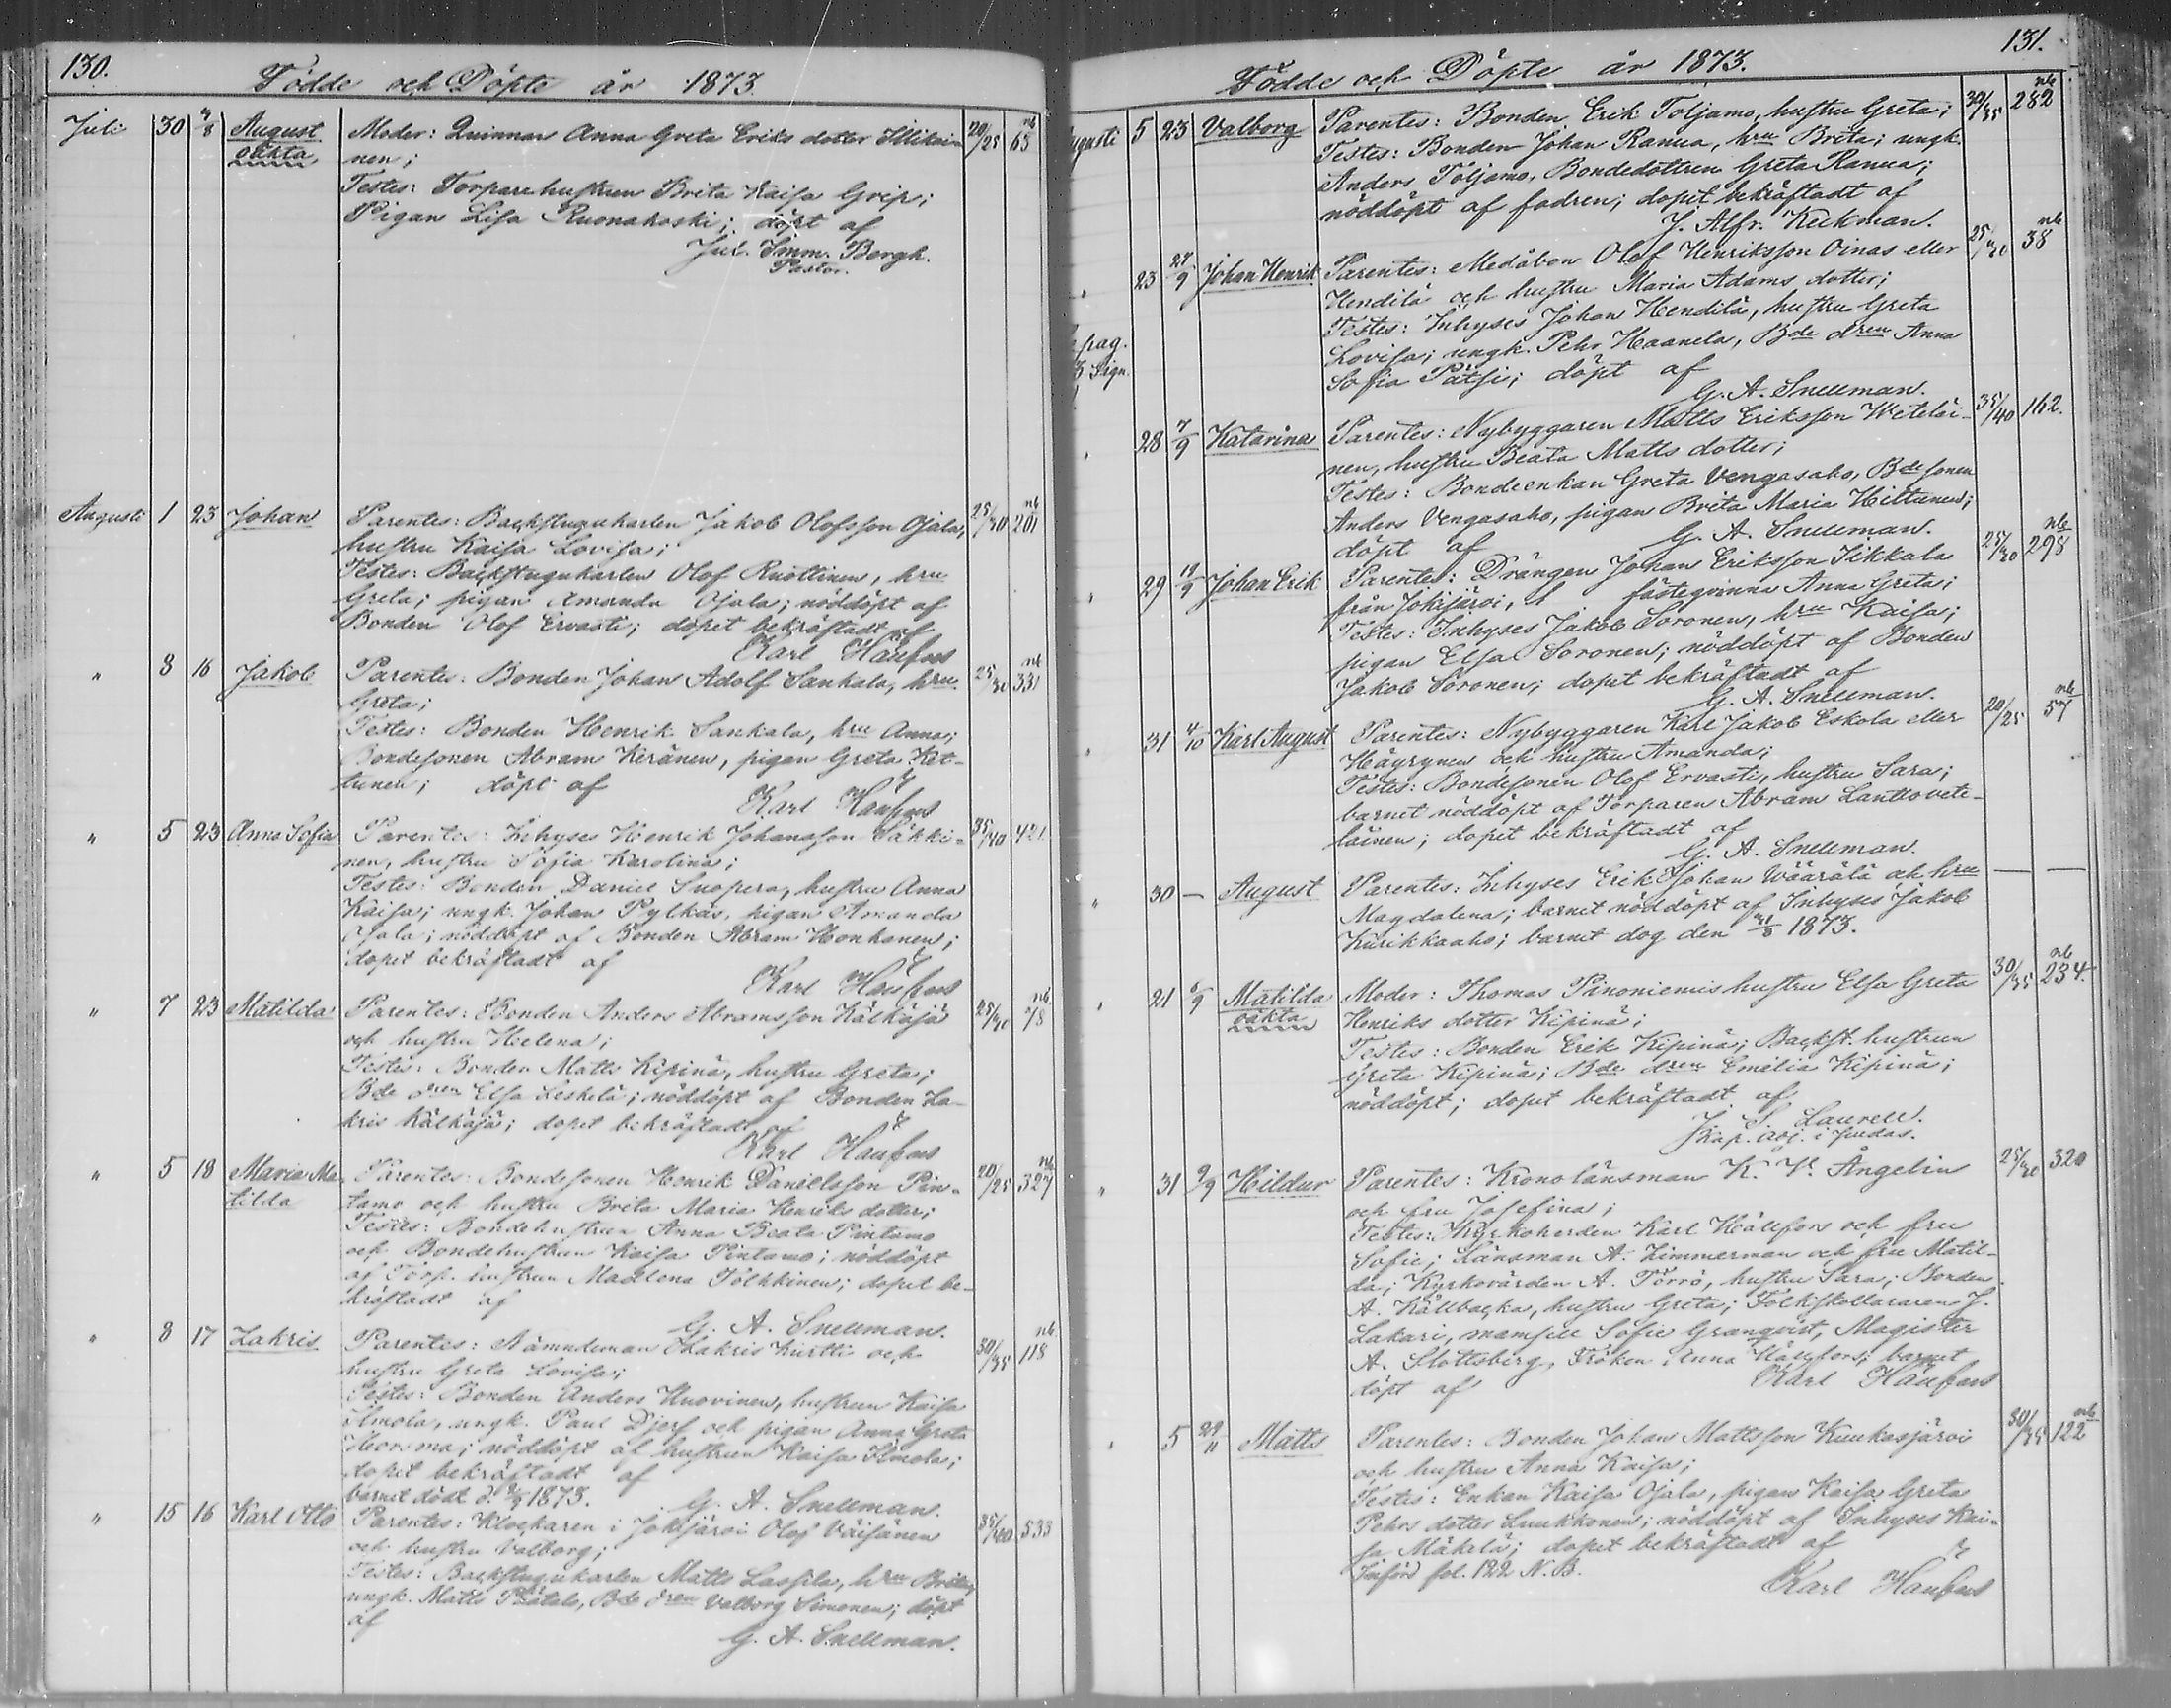 130.
Födde och Döpte år 1873.
Juli 30 August Moder: Qvinnan Anna Greta Eriks dotter Illikai- 20/25 nb 65
oäkta nen;
Testes: Torpare hustrun Brita Kaisa Grip;
Pigan Lisa Ruonakoski; döpt af
Jul. Imm. Bergh.
Pastor.
Augusti 1 23 Johan Parentes: Backstugukarlen Jakob Olofsson Ojala, 25/30 nb 201
hustru Kaisa Lovisa;
Testes: Backstugukarlen Olof Ruottinen, hru
Greta; pigan Amanda Ojala; nöddöpt af
Bonden Olof Ervasti; dopet bekräftadt af
Karl Hällfors
" 8 16 Jakob Parentes: Bonden Johan Adolf Sankala, hru 25/30 nb 331
Greta;
Testes: Bonden Henrik Sankala, hru Anna;
Bondesonen Abram Keränen, pigan Greta Ket-
tunen; döpt af
Karl Hällfors
" 5 23 Anna Sofia Parentes: Inhyses Henrik Johansson Säkki- 35/40 421
nen, hustru Sofia Karolina;
Testes: Bonden Daniel Suopera, hustru Anna
Kaisa; ungk. Johan Pylkäs, pigan Amanda
Ojala; nöddöpt af Bonden Abram Honkanen;
dopet bekräftadt af
Karl Hällfors
" 7 23 Matilda Parentes: Bonden Anders Abramsson Kälkäjä 25/30 nb 78
och hustru Helena;
Testes: Bonden Matts Kipinä, hustru Greta;
Bde dren Elsa Leskelä; nöddöpt af Bonden Za-
kris Kälkäjä; dopet bekräftadt af
Karl Hällfors
" 5 18 Maria Ma- Parentes: Bondesonen Henrik Danielsson Pin- 20/25 nb 327
tilda tamo och hustru Brita Maria Henriks dotter;
Testes: Bondehustrun Anna Beata Pintamo
och Bondehustrun Kaisa Pintamo; nöddöpt
af Torp. hustrun Madlena Tölhkinen; dopet be-
kräftadt af
G. A. Snellman.
" 8 17 Zakris Parentes: Nämndeman Zakris Kurtti och 30/35 nb 118
hustru Greta Lovisa;
Testes: Bonden Anders Huovinen, hustrun Kaisa
Ilmola, ungk. Paul Djerf och pigan Anna Greta
Horsma; nöddöpt af hustrun Kaisa Ilmola;
dopet bekräftadt af
barnet dödt d. 1873. G. A. Snellman.
" 15 16 Karl Otto Parentes: Klockaren i Jokijärvi Olof Väisänen 35/40 533
och hustru Valborg;
Testes: Backstugukarlen Matts Lassila, hru Brita,
ungk. Matts Pätäle, Bde dren Valborg Simonen; döpt
af
G. A. Snellman.
131.
Födde och Döpte år 1873.
Augusti 5 23 Valborg Parentes: Bonden Erik Toljamo, hustru Greta; 30/35 nb 282
Testes: Bonden Johan Ranua, hru Brita; ungk.
Anders Toljamo, Bondedottren Greta Ranua;
nöddöpt af fadren; dopet bekräftadt af
J. Alfr. Keckman.
" 23 27/9 Johan Henrik Parentes: Medåbon Olof Henriksson Oinas eller 25/30 nb 38
Hendilä och hustru Maria Adams dotter;
pag. Testes: Inhyses Johan Hendilä, hustru Greta
Sign. Lovisa; ungk. Pehr Haanela, Bde dren Anna
Sofia Pätsi; döpt af
G. A. Snellman.
" 28 7/9 Katarina Parentes: Nybyggaren Matts Eriksson Weteläi- 35/40 162.
nen, hustru Beata Matts dotter;
Testes: Bondeenkan Greta Vengasaho, Bde sonen
Anders Vengasaho, pigan Brita Maria Hiltunen;
döpt af G. A. Snellman.
" 29 19/9 Johan Erik Parentes: Drängen Johan Eriksson Sikkala 25/30 nb 298
från Jokijärvi, fästeqvinna Anna Greta;
Testes: Inhyses Jakob Soronen, hru Kaisa;
pigan Elsa Soronen; nöddöpt af Bonden
Jakob Soronen; dopet bekräftadt af
G. A. Snellman.
" 31 4/10 Karl August Parentes: Nybyggaren Karl Jakob Eskola eller 20/25 nb 57
Häyrynen och hustru Amanda;
Testes: Bondesonen Olof Ervasti, hustru Sara;
barnet nöddöpt af Torparen Abram Lanttovete-
läinen; dopet bekräftadt af
G. A. Snellman.
" 30 — August Parentes: Inhyses Erik Johan Wäärälä och hru — —
Magdalena; barnet nöddöpt af Inhyses Jakob
Kurikkaaho; barnet dog den 31/8 1873.
" 21 6/9 Matilda Moder: Thomas Pinoniemis hustru Elsa Greta 30/35 nb 234.
oäkta Henriks dotter Kipinä;
Testes: Bonden Erik Kipinä; Backst. hustrun
Greta Kipinä; Bde dren Emelia Kipinä;
nöddöpt; dopet bekräftadt af
J. S. Laurell.
Kap. adj. i Pudas.
" 31 9/9 Hildur Parentes: Kronolänsman K. V. Ångelin 25/30 320
och fru Josefina;
Testes: Kyrkoherden Karl Hällfors och fru
Sofie; Länsman A. Zimmerman och fru Matil-
da; Kyrkovärden A. Törrö, hustru Sara; Bonden
A. Källbacka, hustru Greta; Folkskollararen J.
Lakari, mamsell Sofie Granqvist, Magister
A. Slottsberg, Fröken Anna Hällfors; barnet
döpt af Karl Hällfors
" 5 29/11 Matts Parentes: Bonden Johan Mattsson Kuukasjärvi 30/35 nb 122
och hustru Anna Kaisa;
Testes: Enkan Kaisa Ojala, pigan Kaisa Greta
Pehrs dotter Luukkonen; nöddöpt af Inhyses Kai-
sa Mäkelä; dopet bekräftadt af
Införd fol. 122 N. B.
Karl Hällfors